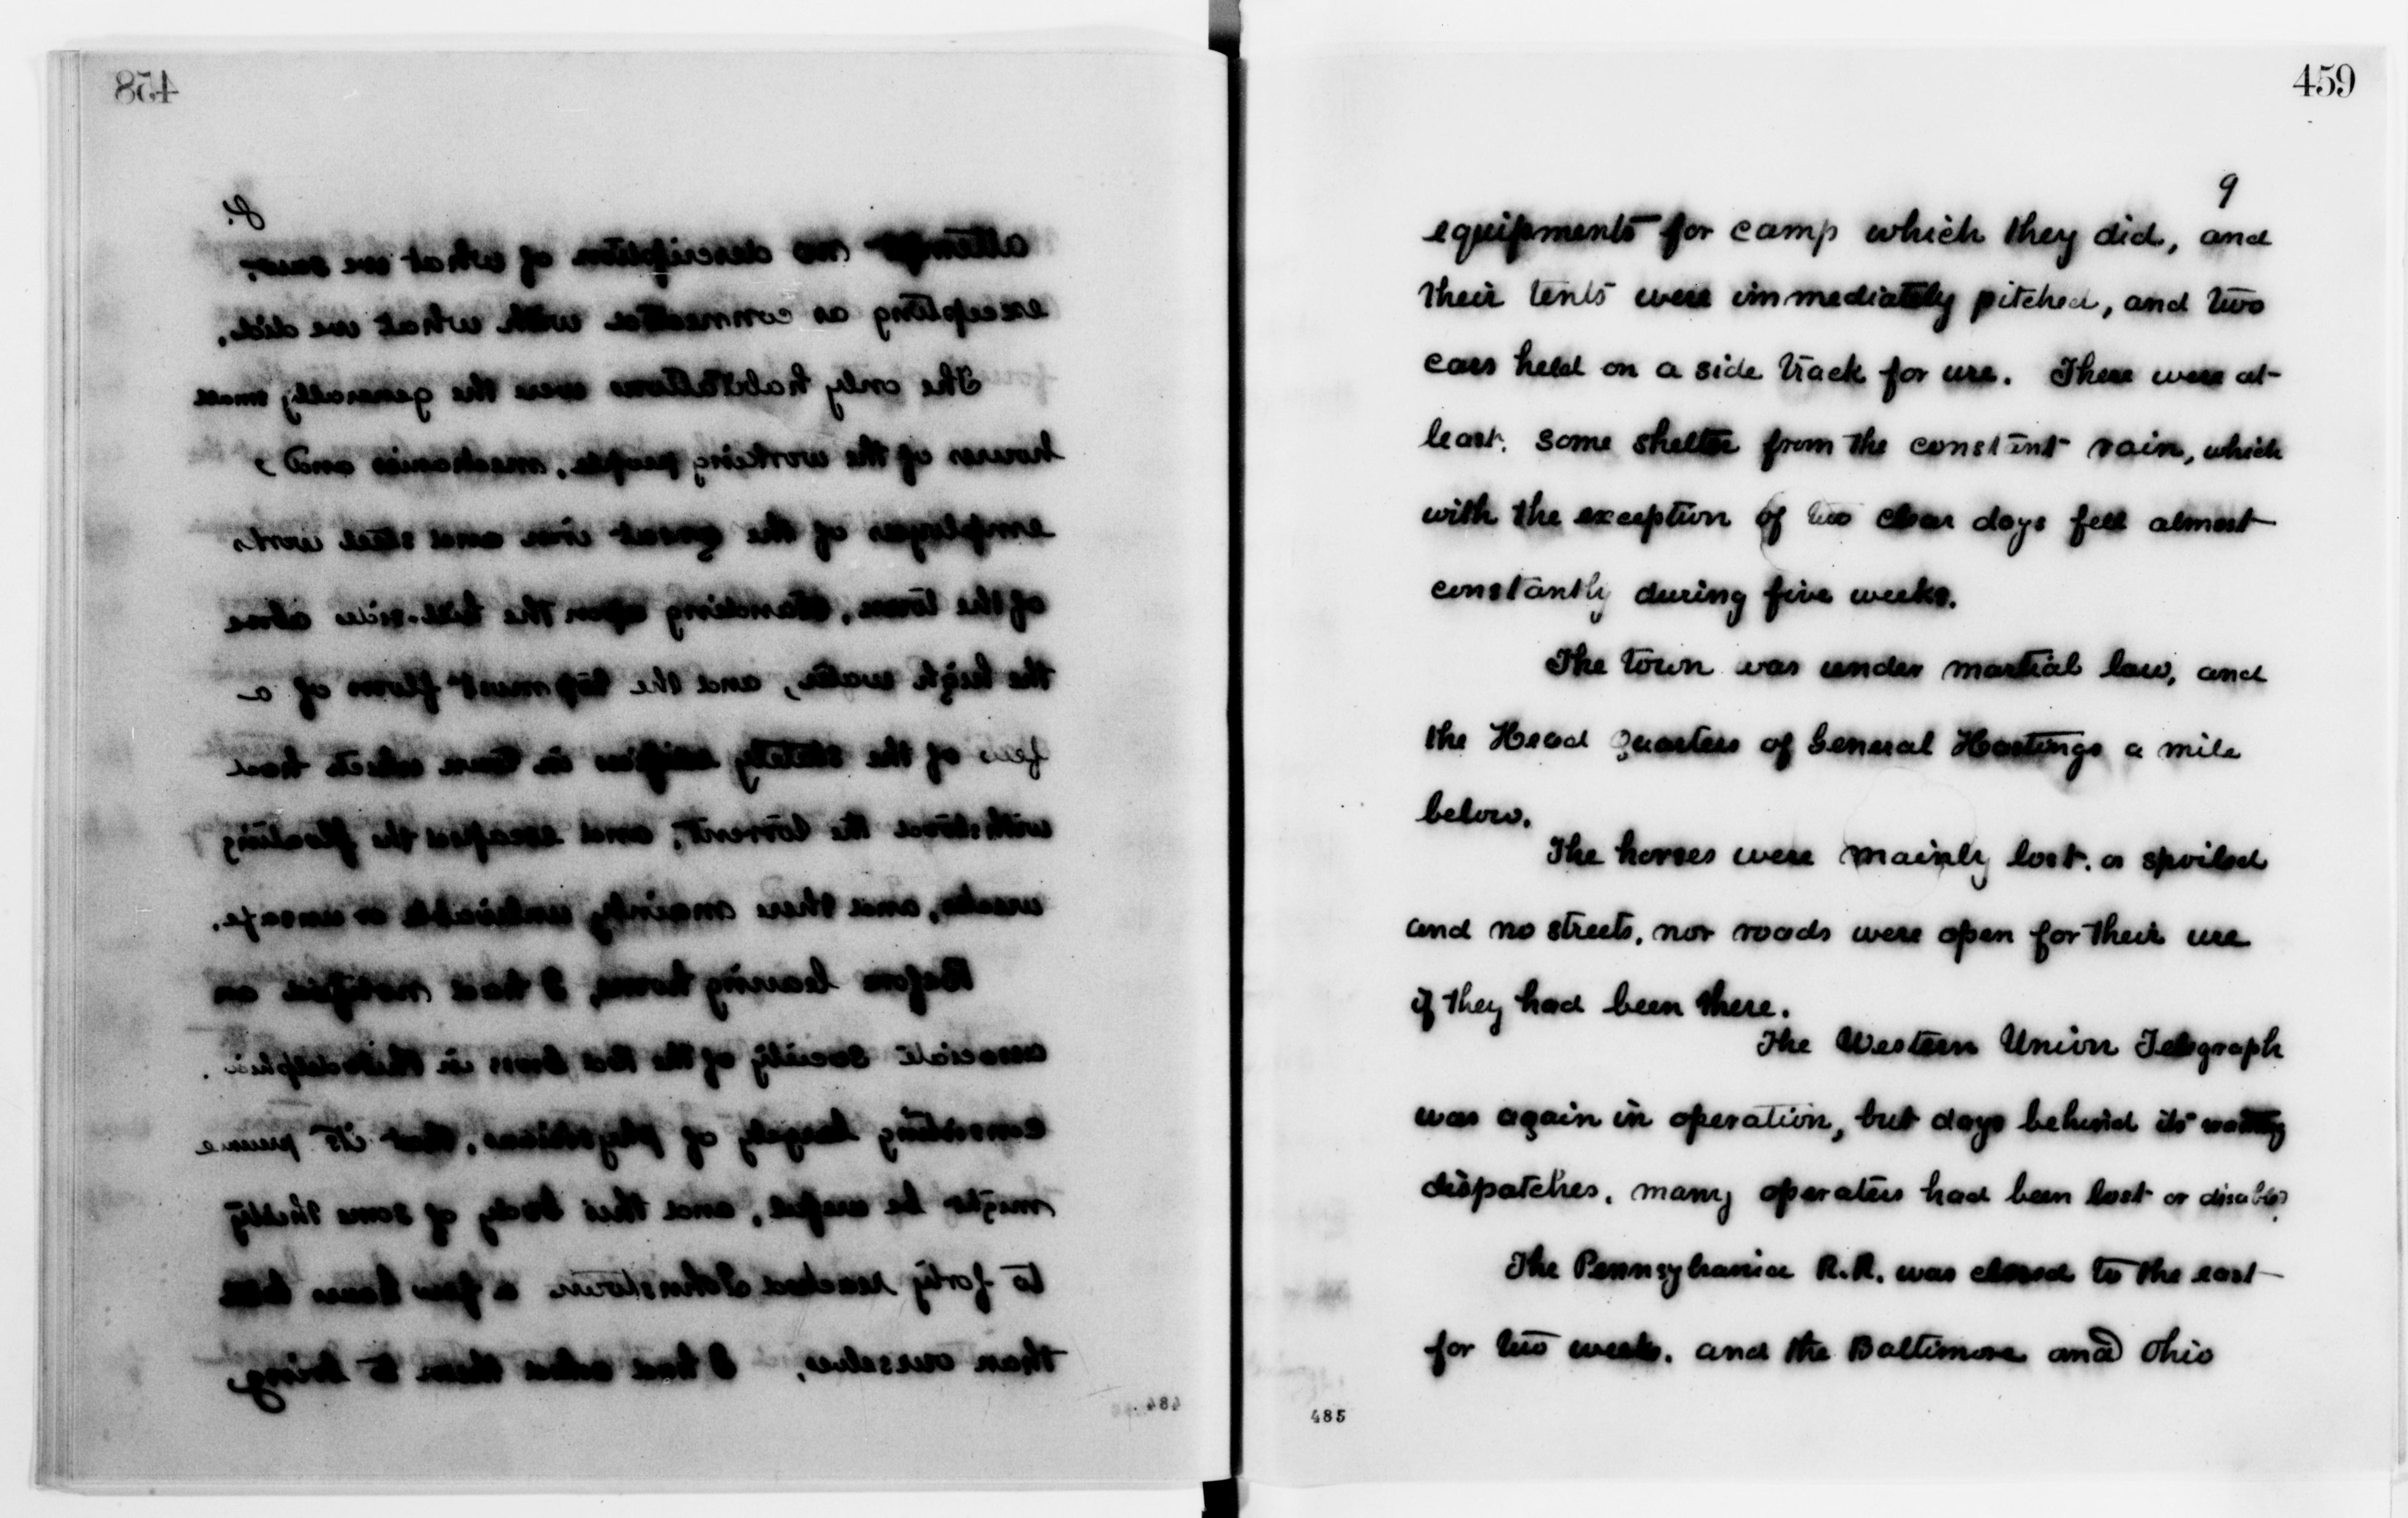 458
8.
attempt no description of what we saw,
excepting as connected with what we did.
The only habitations were the generally small
houses of the working people, mechanics and
employes of the great iron and steel works
of the town, standing upon the hill-sides above
the high water, and the topmost floors of a
few of the stately edifices in town which had
withstood the torrent, and escaped the floating
wrecks, and these mainly or unsafe.
Before leaving home, I had notified an
associate society of the Red Cross in Philadelphia,
consisting largely of physicians, that its
might be useful, and this body of some thirty
to forty reached Johnstown a few hours later
than ourselves, I had asked them to bring
484
459
9
equipments for camp which they did, and
their tents were immediately pitched, and two
cars held on a side track for use. There were at-
least. some shelter from the constant rain, which
with the exception of two clear days fell almost
constantly during five weeks.
The town was under martial law, and
the Head Quarters of General Hastings a mile
below.
The horses were mainly lost. or spoiled
and no streets, nor roads were open for their use
if they had been there.
The Western Union Telegraph
was again in operation, but days behind its waiting
dispatches, many operators had been lost or disabled.
The Pennsylvania R.R. was closed to the east
for two weeks. and the Baltimore and Ohio
485